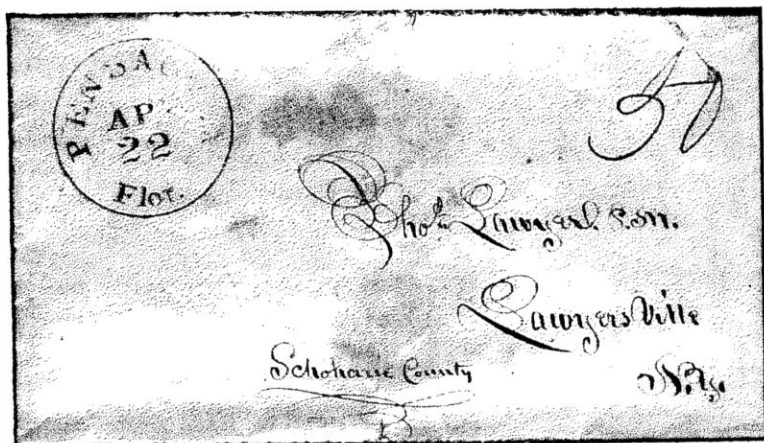 PENSAC
AP
22
Flor.
Lawyer P.M.
Lawyersville
Schoharie County
N.Y.